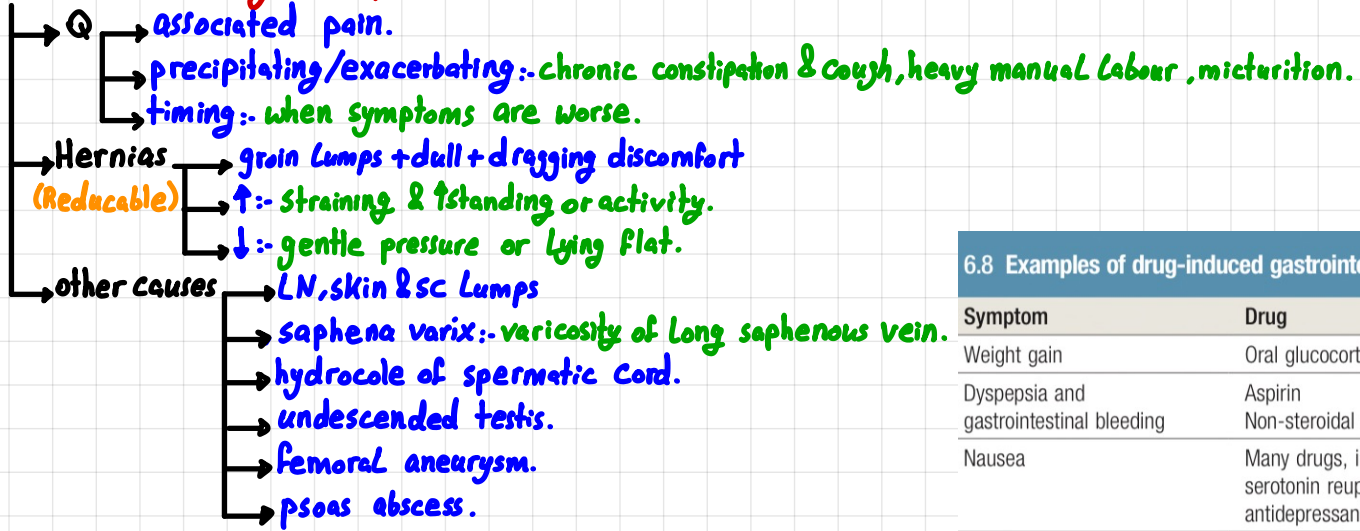 Q
associated pain.
precipitating/exacerbating:- chronic constipation & cough, heavy manual labour, micturition.
timing:- when symptoms are worse.
Hernias
(Reducable)
groin lumps + dull + dragging discomfort
↑:- straining & ↑standing or activity.
↓:- gentle pressure or lying flat.
other causes
LN, skin & sc lumps
saphena varix:- varicosity of long saphenous vein.
hydrocole of spermatic cord.
undescended testis.
femoral aneurysm.
psoas abscess.
6.8 Examples of drug-induced gastrointe
Symptom Drug
Weight gain Oral glucocort
Dyspepsia and Aspirin
gastrointestinal bleeding Non-steroidal
Nausea Many drugs, i
serotonin reup
antidepressan